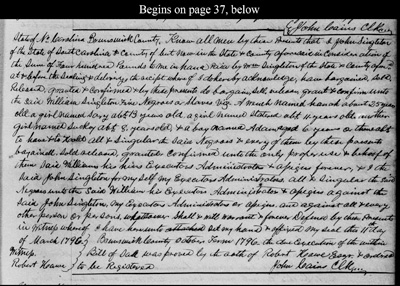 Begins on page 37, below
John Cains CLKcy
State of No Carolina Brunswick County. Know all men by these Presents that I John Singleton
of the State of Carolina & County of in the State & County aforesaid in Consideration of
the Sum of Four hundred Pounds to me in hand Paid by Wm Singleton of the State & County
at & before the Sealing & delivery the receipt whereof I do hereby acknowledge, have bargained, sold
Released, granted & confirmed & by these presents do bargain, sell, release, grant & confirm unto
the said William Singleton Five Negroes a Slaves Viz. A wench Named hanah about 35 years
old a girl named Mary abt 13 years old a girl Named abt 11 years old, another
girl named Suckey abt 8 years old & a boy named Adam aged 6 years or thereabt
to have & to hold all & Singular the said Negroes & every of them by these presents
bargained sold released, granted & Confirmed unto the only proper use & behoof of
them said Williams his heirs Executors Administrators & assigns forever, & I the
said John Singleton for my self my Executors Administrators all & Singular the said
Negroes unto the said William his Executors Administrators & Assigns against the
said John Singleton, my Executors Administrators or assigns, and against all & every
other person or persons, whatsoever shall & will warrant & forever Defend by these Presents
in Witness whereof I have hereunto set my hand & affixed my Seal this 11 day
of March 1796. Brunswick County October Term 1796 the due execution of the within
Witness Bill of Sale was proven by the oath of Robert Howe Esqr & ordered
Robert Howe to be Registered John Cains CLKcy